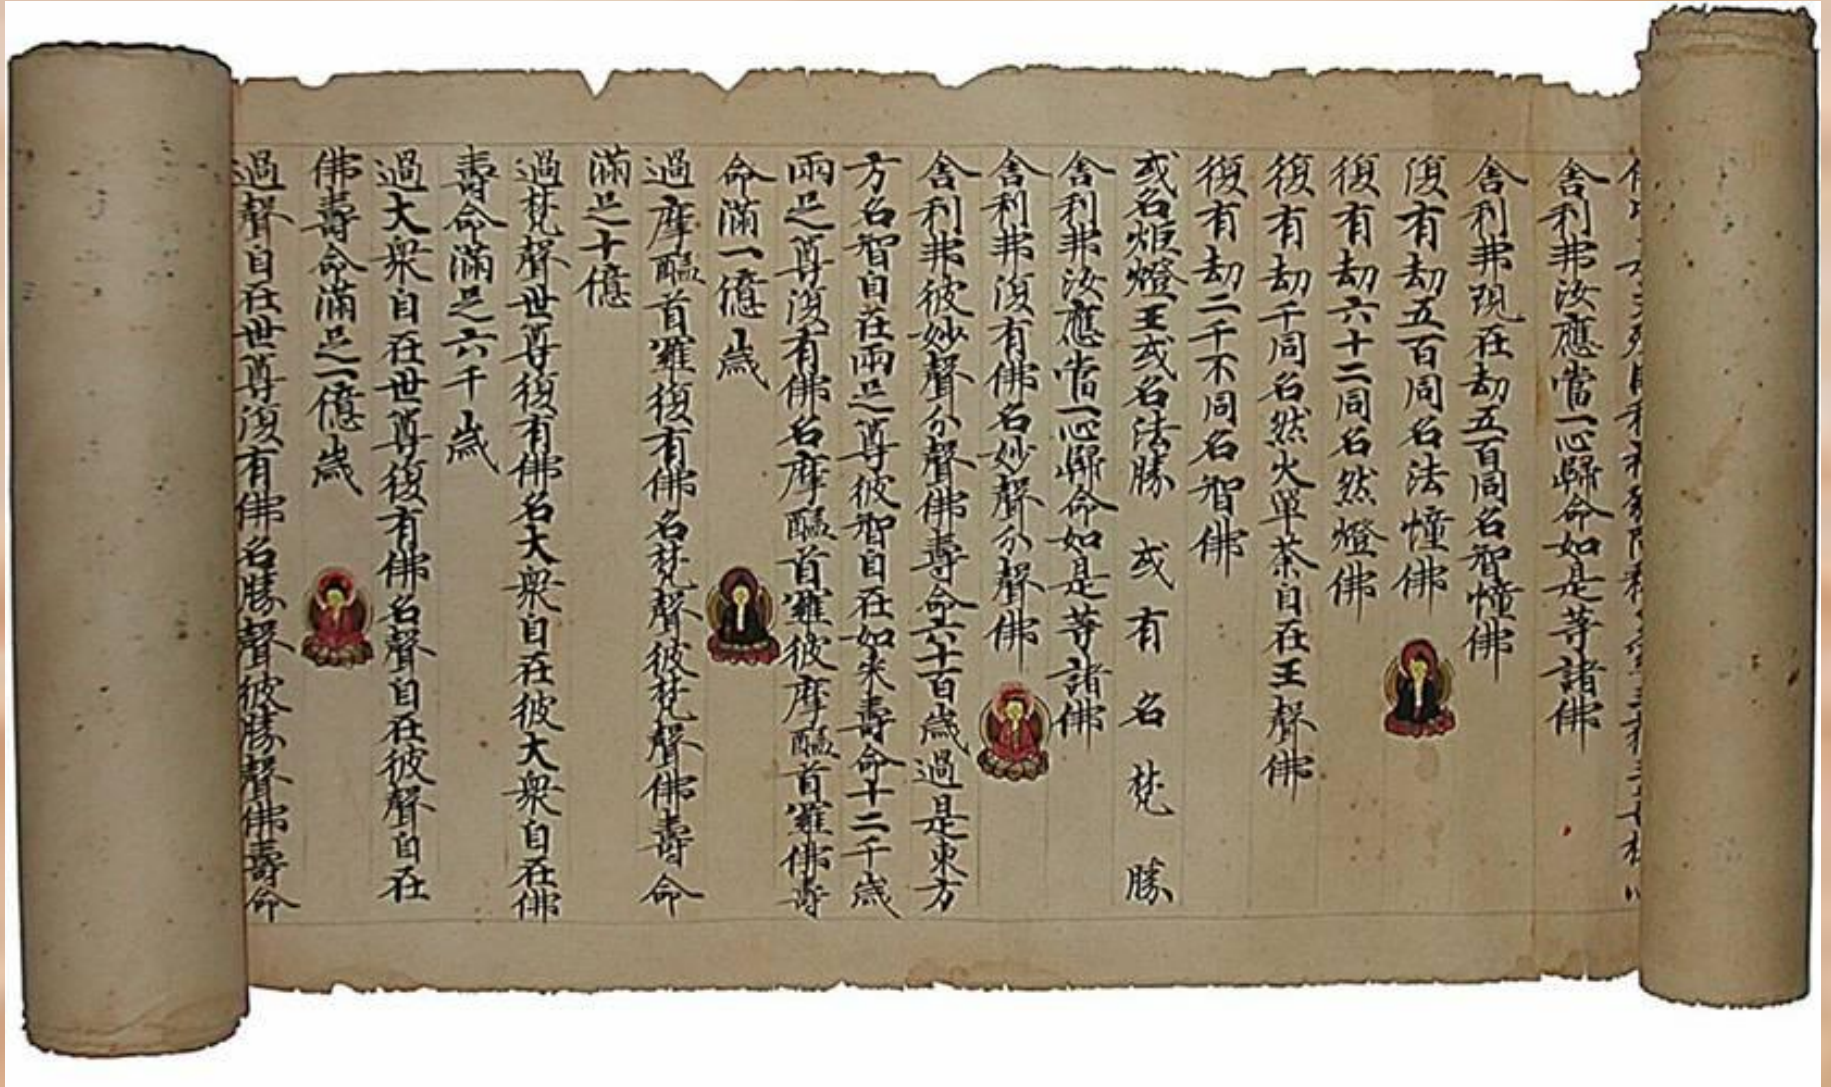 舎利弗汝應當一心歸命如是等諸佛
舎利弗現在劫五百同名智幢佛
復有劫五百同名法幢佛
復有劫六十二同名然燈佛
復有劫千同名然火單荼自在王聲佛
復有劫二千不同名智佛
或名炬燈王或名法勝或有名梵勝
舎利弗汝應當一心歸命如是等諸佛
舎利弗復有佛名妙聲分聲佛
舎利弗彼妙聲分聲佛壽命六十百歳過是東方
方名智自在兩足尊彼智自在如来壽命十二千歳
兩足尊復有佛名摩醯首羅彼摩醯首羅佛壽
命滿一億歳
過摩醯首羅復有佛名梵聲彼梵聲佛壽命
滿足十億
過梵聲世尊復有佛名大衆自在彼大衆自在佛
壽命滿足六千歳
過大衆自在世尊復有佛名聲自在彼聲自在
佛壽命滿足一億歳
過聲自在世尊復有佛名勝聲彼勝聲佛壽命